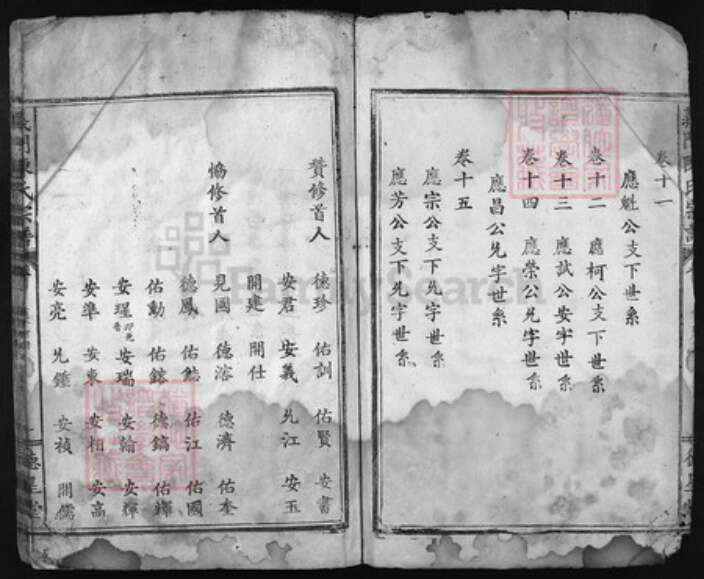 卷十一
應魁公支下世系
卷十二 應柯公支下世系
卷十三 應試公安字世系
卷十四 應榮公允字世系
應昌公允字世系
卷十五
應宗公支下允字世系
應芳公支下允字世系
贊修首人 德珍 佑訓 佑賢 安書
安君 安義 允江 安玉
開建 開仕
協修首人 見國 德溶 德濟 佑奎
德鳳 佑 佑江 佑國
佑勳 佑鎔 德鎬 佑輝
安瑆 安瑞 安翰 安輝
安準 安東 安相 安高
安亮 允鍾 安楨 開儒
陳氏宗譜
德星堂
FamilySearch